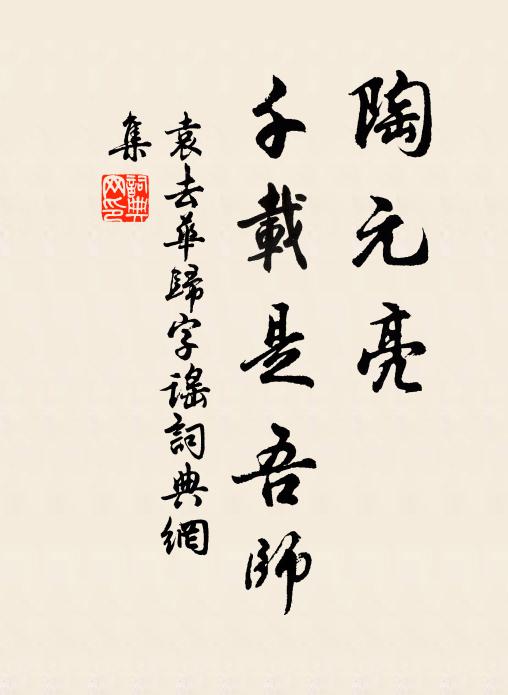 陶元亮
千載是吾師
袁去華歸字谣詞典網
集
詞典
网印